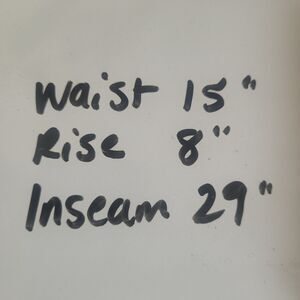 Waist 15"
Rise 8"
Inseam 29"